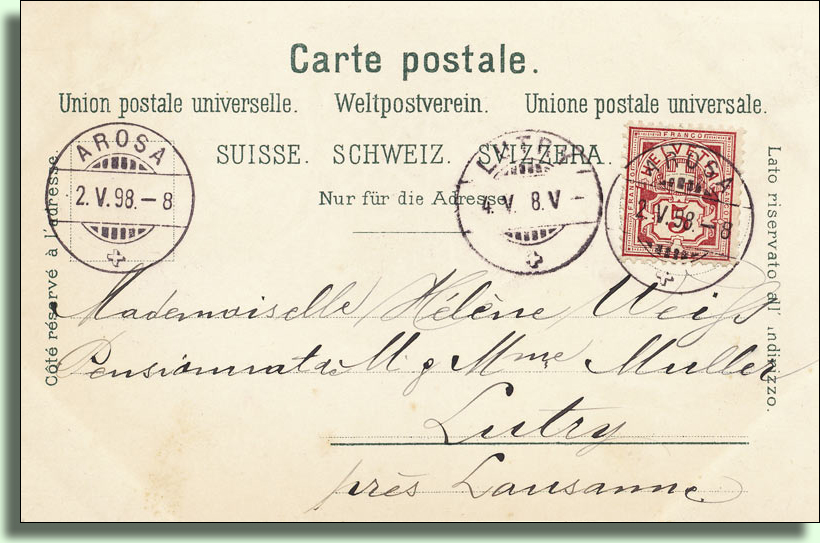 Carte postale.
Union postale universelle. Weltpostverein. Unione postale universale.
SUISSE. SCHWEIZ. SVIZZERA.
Nur für die Adresse.
Côté réservé à l'adresse
Lato riservato all' indirizzo.
AROSA
2.V.98.-8
LUTRY
4.V. 8.V
FRANCO
HELVETIA
5
AROSA
2.V.98.-8
Mademoiselle Hélène Weiß
Pensionnat de M. & Mme Muller
Lutry
près Lausanne